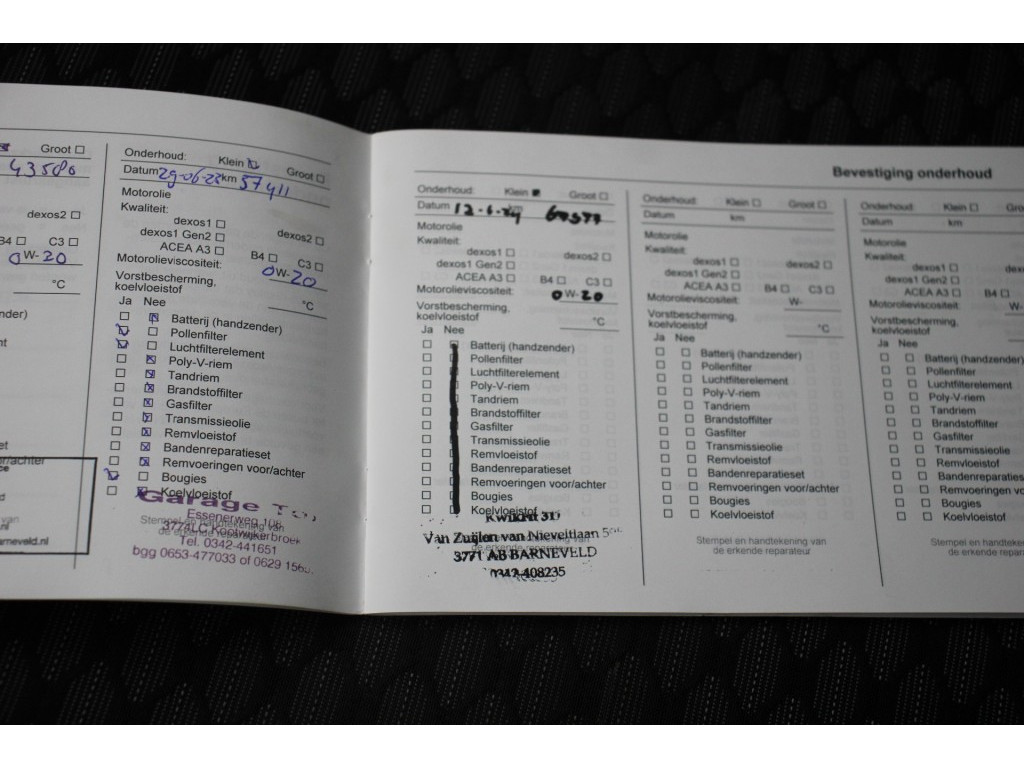 Groot
43580
dexos2
B4 C3
0W-20
°C
ameveld.nl
Onderhoud: Klein Groot
Datum 29-06-23 km 57411
Motorolie
Kwaliteit:
dexos1 dexos2
dexos1 Gen2
ACEA A3 B4 C3
Motorolieviscositeit: 0W-20
Vorstbescherming,
koelvloeistof °C
Ja Nee
Batterij (handzender)
Pollenfilter
Luchtfilterelement
Poly-V-riem
Tandriem
Brandstoffilter
Gasfilter
Transmissieolie
Remvloeistof
Bandenreparatieset
Remvoeringen voor/achter
Bougies
Koelvloeistof
Garage
Essenerweg
3774LC Kootwijkerbroek
Tel. 0342-441651
bgg 0653-477033 of 0629
Bevestiging onderhoud
Onderhoud: Klein Groot
Datum 12-6-24 km
Motorolie
Kwaliteit:
dexos1 dexos2
dexos1 Gen2
ACEA A3 B4 C3
Motorolieviscositeit: 0W-20
Vorstbescherming,
koelvloeistof °C
Ja Nee
Batterij (handzender)
Pollenfilter
Luchtfilterelement
Poly-V-riem
Tandriem
Brandstoffilter
Gasfilter
Transmissieolie
Remvloeistof
Bandenreparatieset
Remvoeringen voor/achter
Bougies
Koelvloeistof
Van Zuijlen van Nieveltlaan
3771 AB BARNEVELD
0342-408235
Onderhoud: Klein Groot
Datum km
Motorolie
Kwaliteit:
dexos1 dexos2
dexos1 Gen2
ACEA A3 B4 C3
Motorolieviscositeit: W-
Vorstbescherming,
koelvloeistof °C
Ja Nee
Batterij (handzender)
Pollenfilter
Luchtfilterelement
Poly-V-riem
Tandriem
Brandstoffilter
Gasfilter
Transmissieolie
Remvloeistof
Bandenreparatieset
Remvoeringen voor/achter
Bougies
Koelvloeistof
Stempel en handtekening van
de erkende reparateur
Onderhoud: Klein Groot
Datum km
Motorolie
Kwaliteit:
dexos1
dexos1 Gen2
ACEA A3 B4
Motorolieviscositeit: W-
Vorstbescherming,
koelvloeistof
Ja Nee
Batterij (handzender)
Pollenfilter
Luchtfilterelement
Poly-V-riem
Tandriem
Brandstoffilter
Gasfilter
Transmissieolie
Remvloeistof
Bandenreparatieset
Remvoeringen voor
Bougies
Koelvloeistof
Stempel en
de erkende reparateur